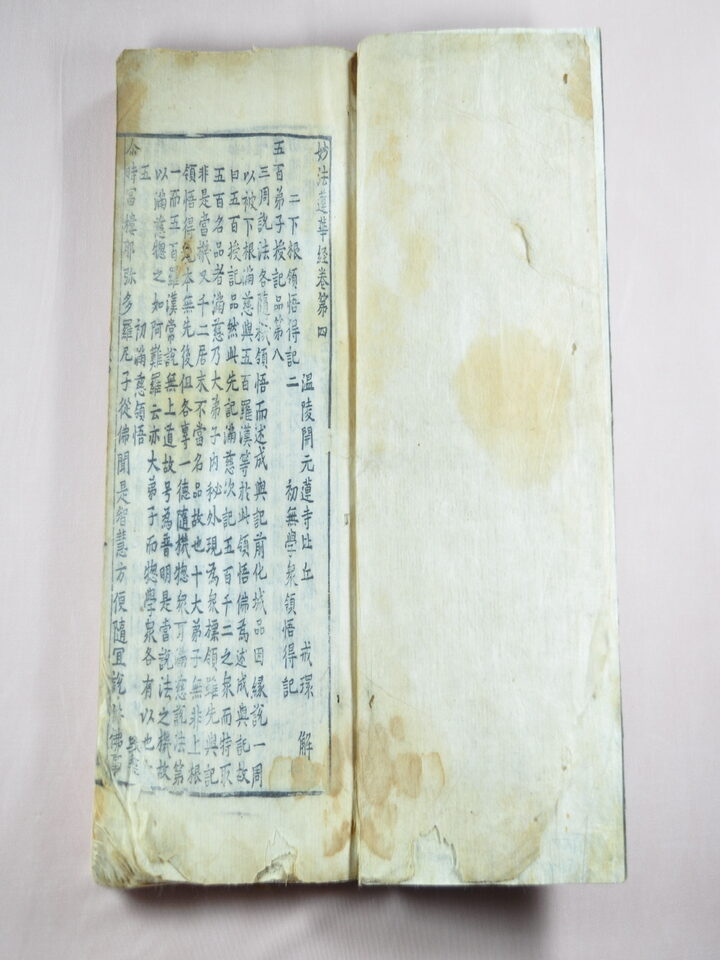 妙法蓮華經卷第四
溫陵開元蓮寺比丘 戒環 解
二下根領悟得記二 初無學衆領悟得記
五百弟子授記品第八
三周說法各隨機領悟而述成與記前化城品因緣說一周
以被下根滿慈與五百羅漢等於此領悟佛爲述成與記故
曰五百授記品然此先記滿慈次記五百千二之衆而特取
五百名品者滿慈乃大弟子內秘外現爲衆標領雖先與記
非是當機又千二居末不當名品故也十大弟子無非上根
領悟得記本無先後但各專一德隨機揔衆可滿慈說法第
一而五百羅漢常說無上道故号爲普明是當說法之機故
以滿慈揔之如阿難羅云亦大弟子而揔學衆各有以也
五 初滿慈領悟
尒時富樓那弥多羅尼子從佛聞是智慧方便隨宜說